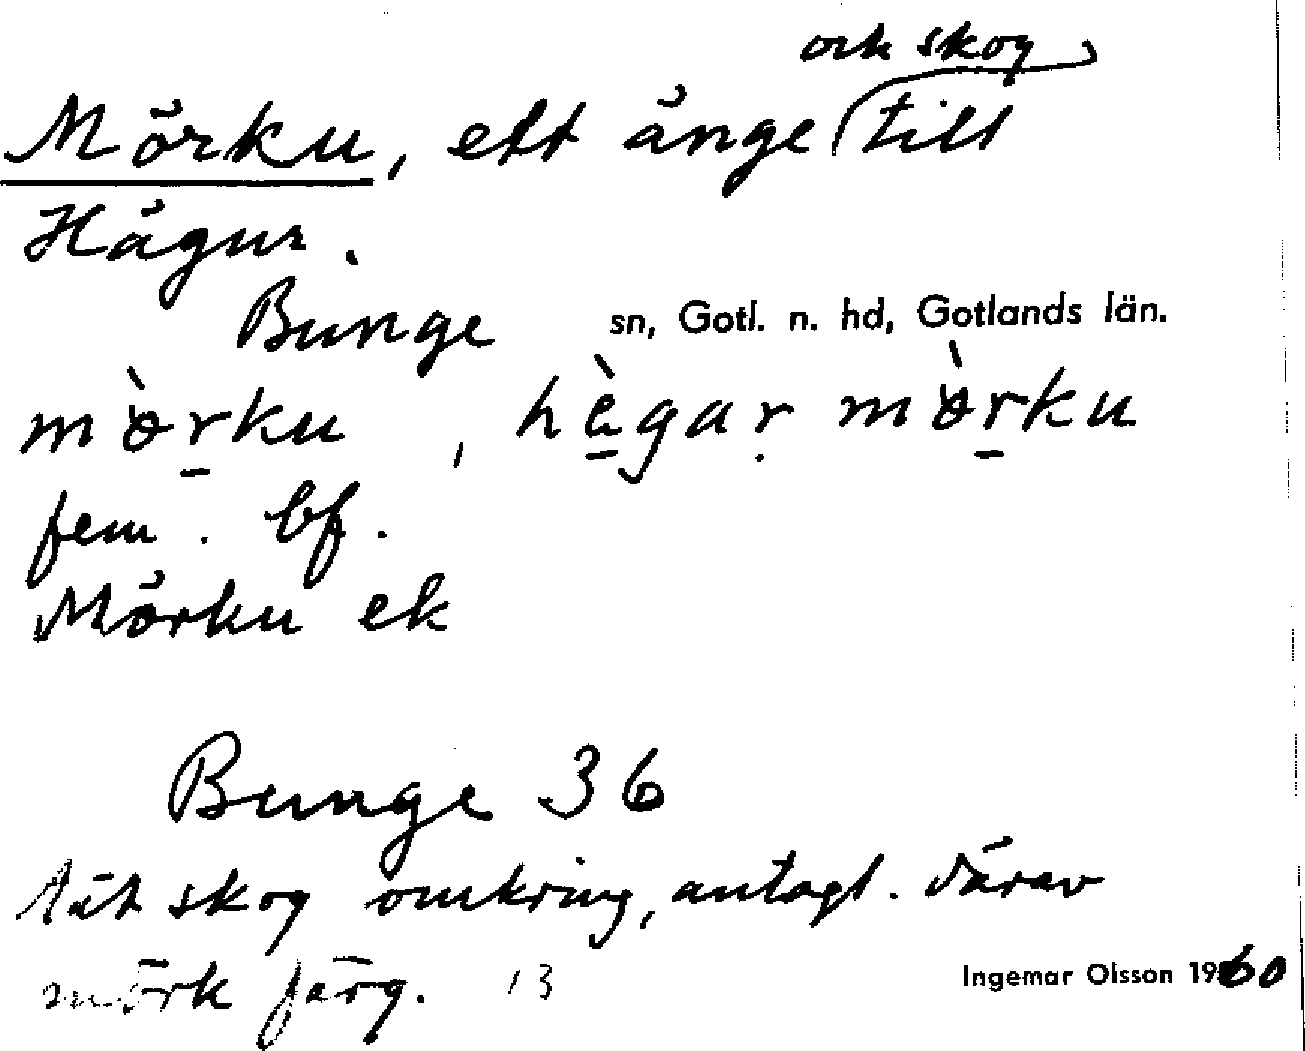 och skog
Mörku, ett änge till
Hägur.
Bunge sn, Gotl. n. hd, Gotlands län.
mòrku, hègar mòrku
fem. bf.
Mörku ek
Bunge 36
tät skog omkring, antagl. därav
mörk färg. 13
Ingemar Olsson 1960